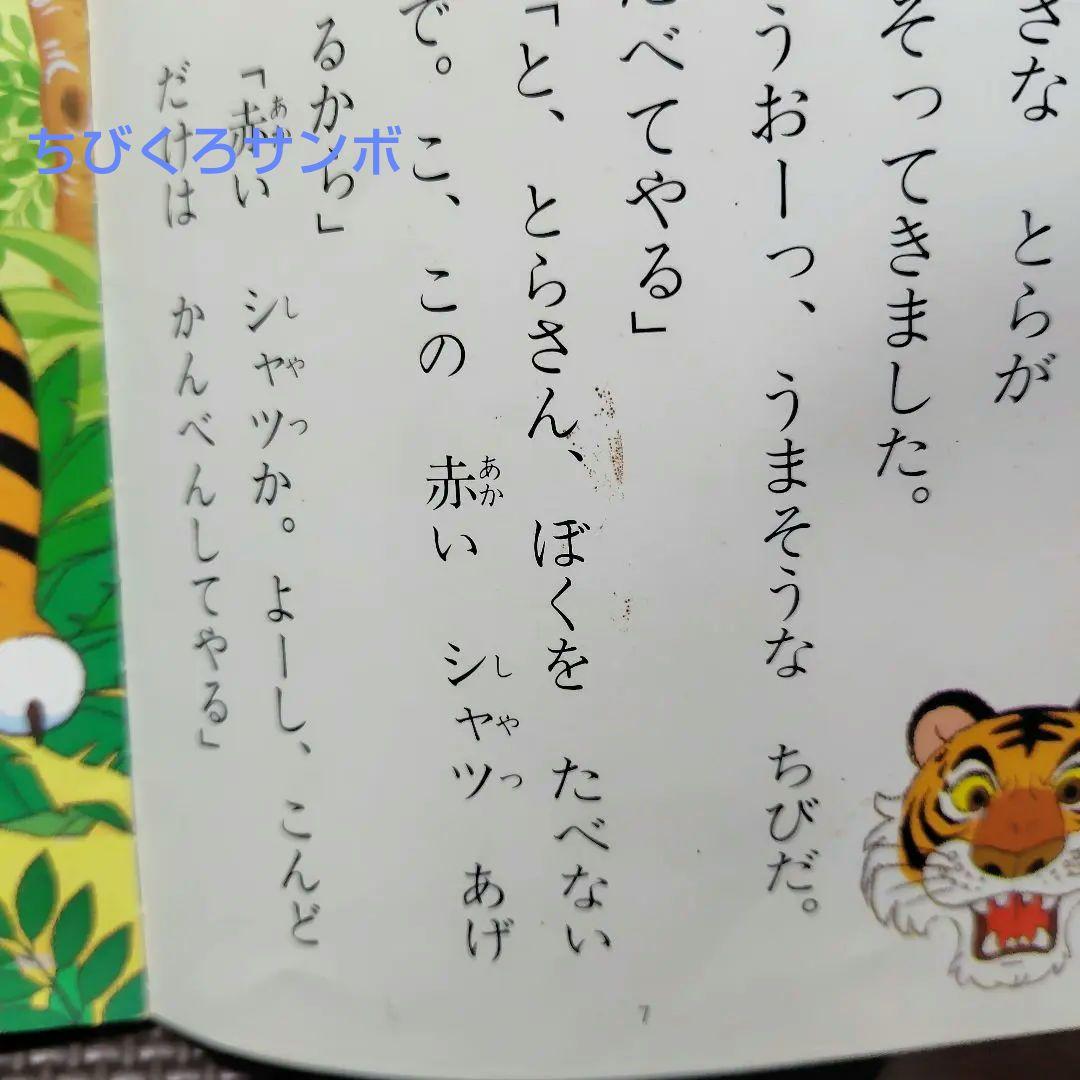 さな　とらが
そってきました。
うおーっ、うまそうな　ちびだ。
べてやる」
「と、とらさん、ぼくを　たべない
で。こ、この　赤い　シャツ　あげ
るから」
「赤い　シャツか。よーし、こんど
だけは　かんべんしてやる」
あか
しやつ
あか
しやつ
ちびくろサンボ
7